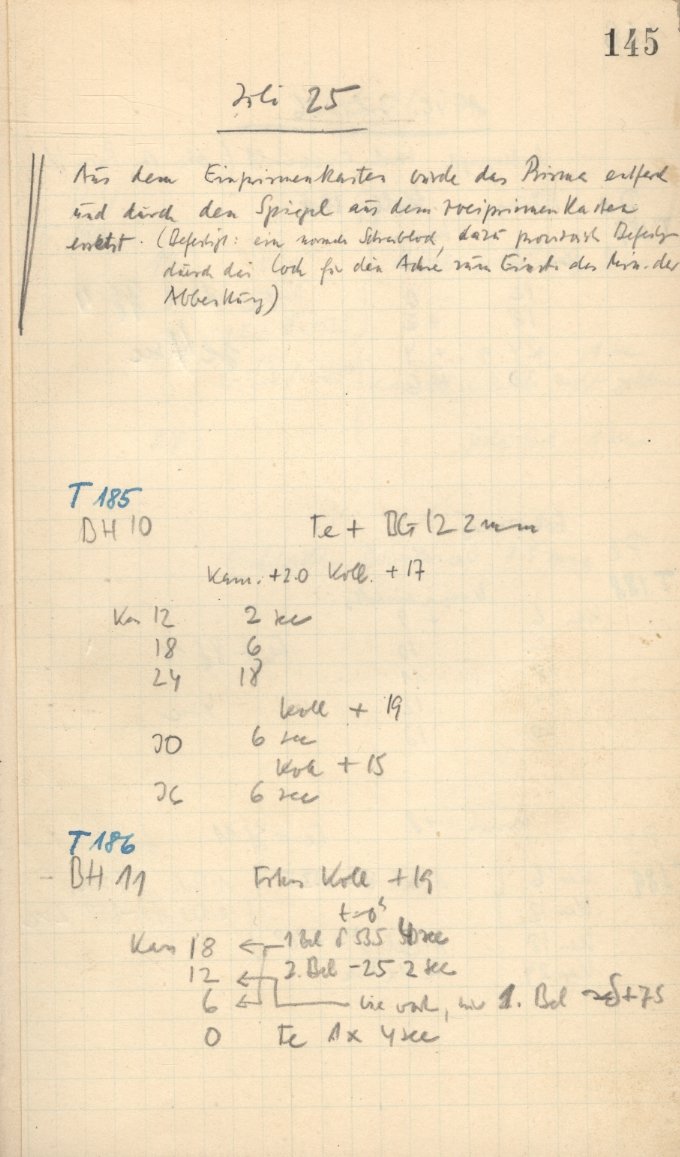 145
Juli 25
Aus dem Einprismenkasten wurde das Prisma entfernt
und durch den Spiegel aus dem Zweiprismenkasten
ersetzt. (Befestigt: ein normaler Schraubloch, dazu provisorisch
durch das Loch für den
T 185
BH 10 Fe + BG 12 2mm
Kam. +20 Koll. +17
Kas 12 2 sec
18 6
24 18
Koll + 19
30 6 sec
Koll + 15
36 6 sec
T 186
BH 11 Fokus Koll +19
Kas 18 ← 1 Bel δ 535 40 sec
12 ← 2. Bel -25 2 sec
6 ← wie vorh, nur 1. Bel δ+75
0 Fe 1x 4 sec